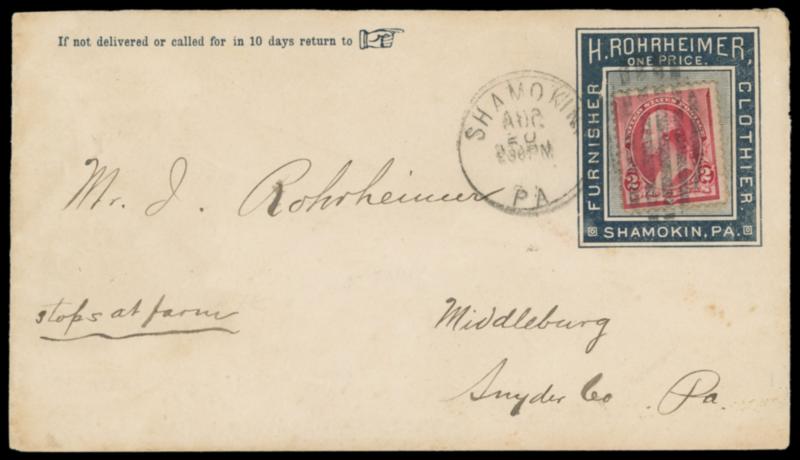 If not delivered or called for in 10 days return to
H. ROHRHEIMER,
ONE PRICE.
FURNISHER
CLOTHIER.
SHAMOKIN, PA.
UNITED STATES POSTAGE
2 2
SHAMOKIN
PA
Mr. J. Rohrheimer
stops at farm
Middleburg
Snyder Co Pa.